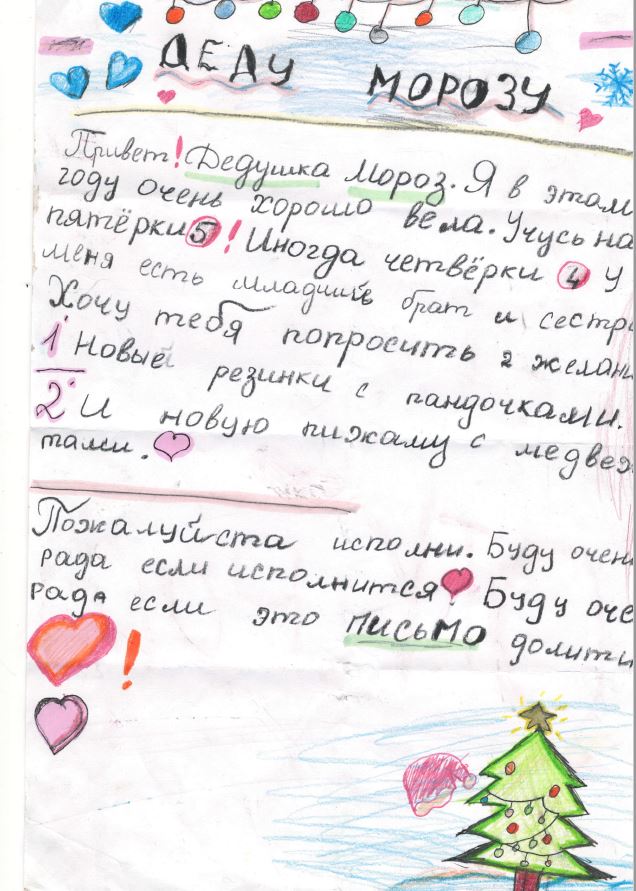 ДЕДУ МОРОЗУ
Привет! Дедушка Мороз. Я в этам
году очень хорошо вела. Учусь на
пятёрки 5! Иногда четвёрки 4 У
меня есть младший брат и сестр
Хочу тебя попросить 2 желани
1 Новые резинки с пандочками.
2 И новую пижаму с медвеж
тами.
Пожалуйста исполни. Буду очен
рада если исполнится Буду оче
рада если это письмо долити
!